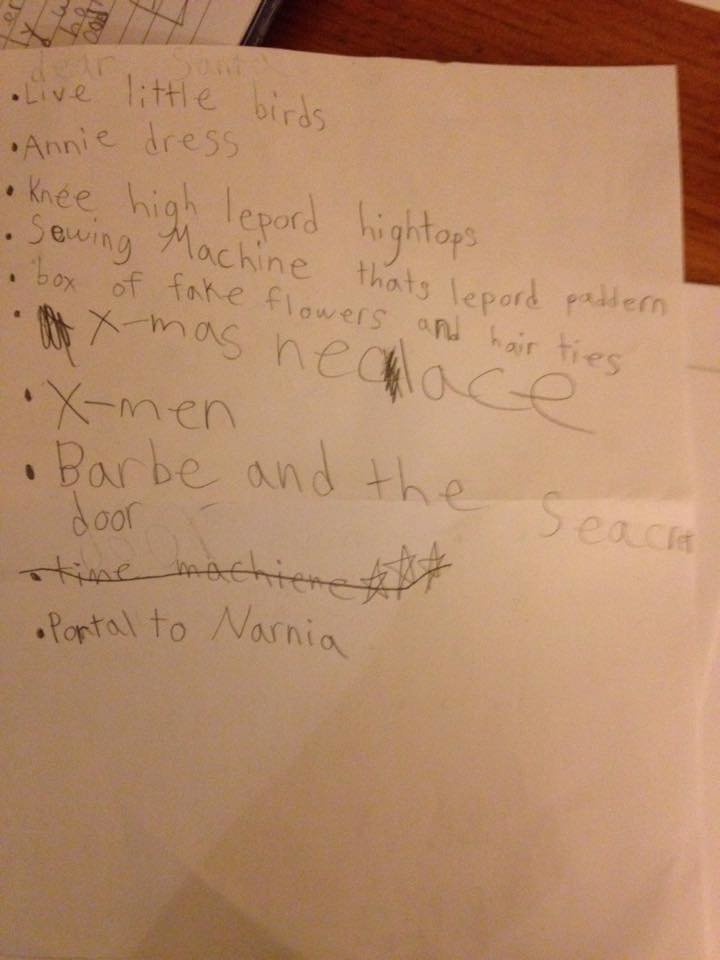 dear Santa
• Live little birds
• Annie dress
• Knee high lepord hightops
• Sewing Machine thats lepord paddern
• box of fake flowers and hair ties
• X-mas neclace
• X-men
• Barbe and the Seacret
door
• time machiene ☆☆☆
• Portal to Narnia